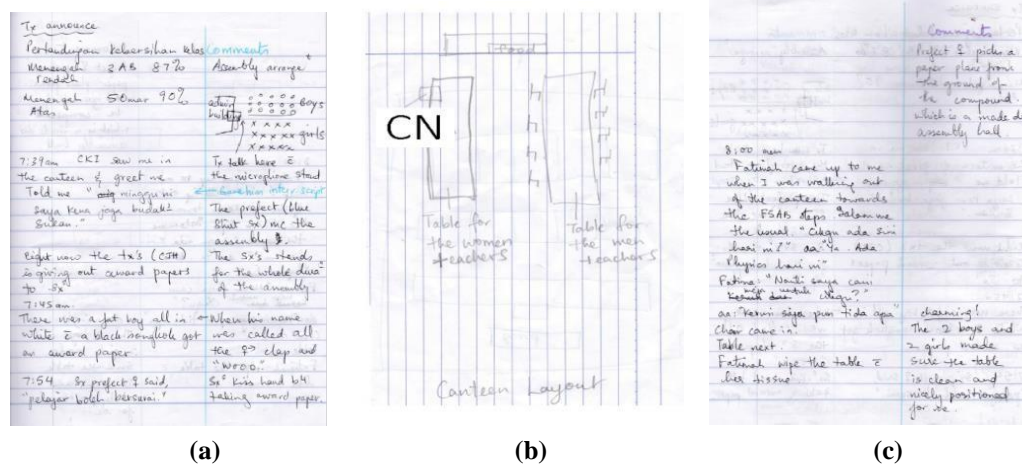 Tx announce
Pertandingan kebersihan kelas
Menengah 2AB 87%
Rendah
Menengah 5 Omar 90%
Atas
7:39am CKI saw me in
the canteen & greet me
Told me " minggu ni
saya kena jaga budak2
Sukan."
Right now the tx's (CJH)
is giving out award papers
to Sx
7:45am
There was a fat boy all in
white c̄ a black songkok got
an award paper
7:54 Sx prefect ♀ said,
"pelajar boleh bersurai."
Comments
Assembly arrange
boys
girls
Tx talk here c̄
the microphone stand
Gave him inter script
The prefect (blue
shirt Sx) mc the
assembly
The Sx's stands
for the whole
of the assembly.
When his name
was called all
the clap and
"wooo."
Sx kiss hand b4
taking award paper.
(a)
Food
CN
Table for
the women
teachers
Table for
the men
teachers
Canteen Layout
(b)
Comments
Prefect ♀ picks a
paper plane from
the ground of
the compound
which is a made
assembly hall
8:00
Fatimah came up to me
when I was walking out
of the canteen towards
the FSAB steps Salam me
the usual. "Cikgu ada sini
hari ni?" aa: "Ya. Ada
Physics hari ni"
Fatima: "Nanti saya cari
untuk cikgu?"
aa: "Kerusi saja pun tida apa"
Chair came in.
Table next.
Fatimah wipe the table c̄
her tissue
charming!
The 2 boys and
2 girls made
sure the table
is clean and
nicely positioned
for me.
(c)